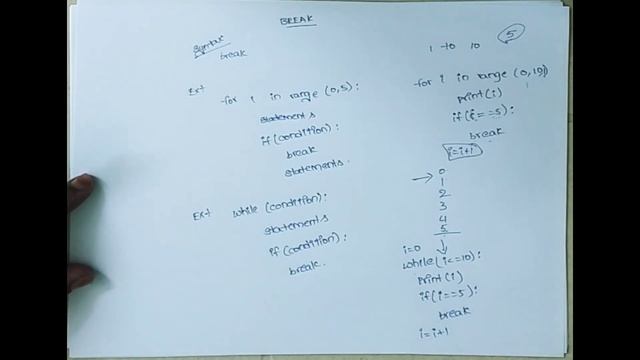 BREAK
Syntax
break
Ex:1
for i in range (0,5):
statements
if(condition):
break
statements.
Ex:1 while (condition):
statements
if (condition):
break.
1 to 10
5
for i in range (0,10))
print(i)
if(i==5):
break
i=i+1
0
1
2
3
4
5
i=0
while(i<=10):
print(i)
if(i==5):
break
i=i+1